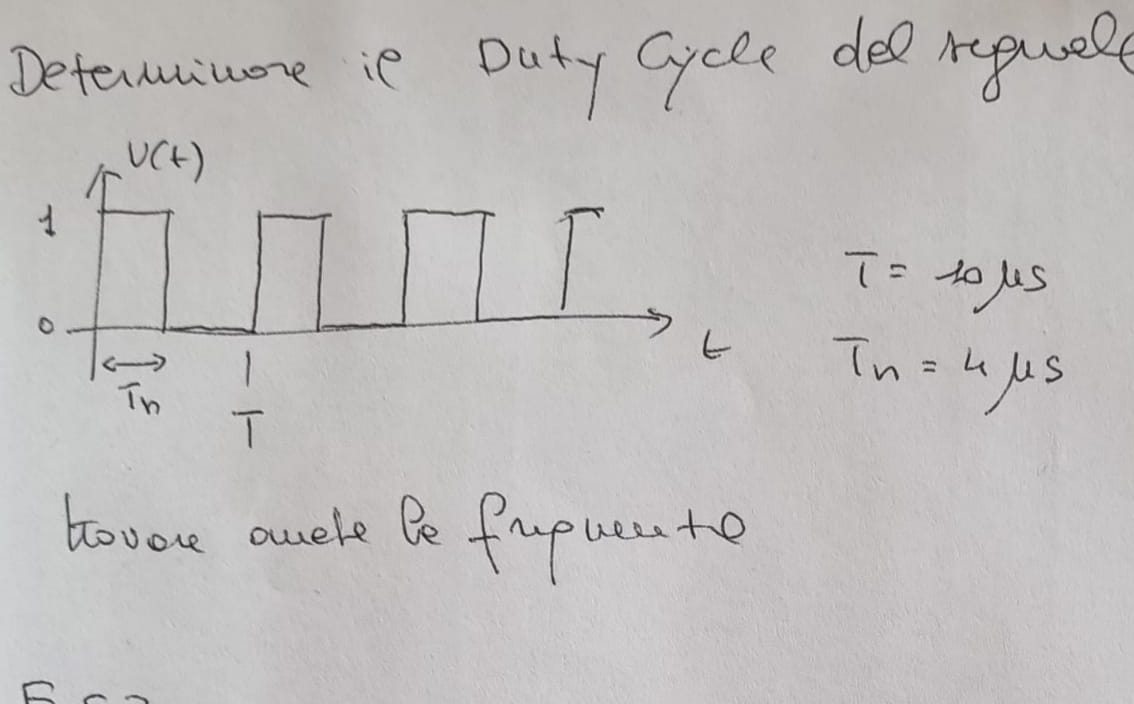 Determinare il Duty Cycle del segnale
V(t)
1
0
t
T = 10 μs
Tn = 4 μs
Tn
T
trovare anche la frequenza